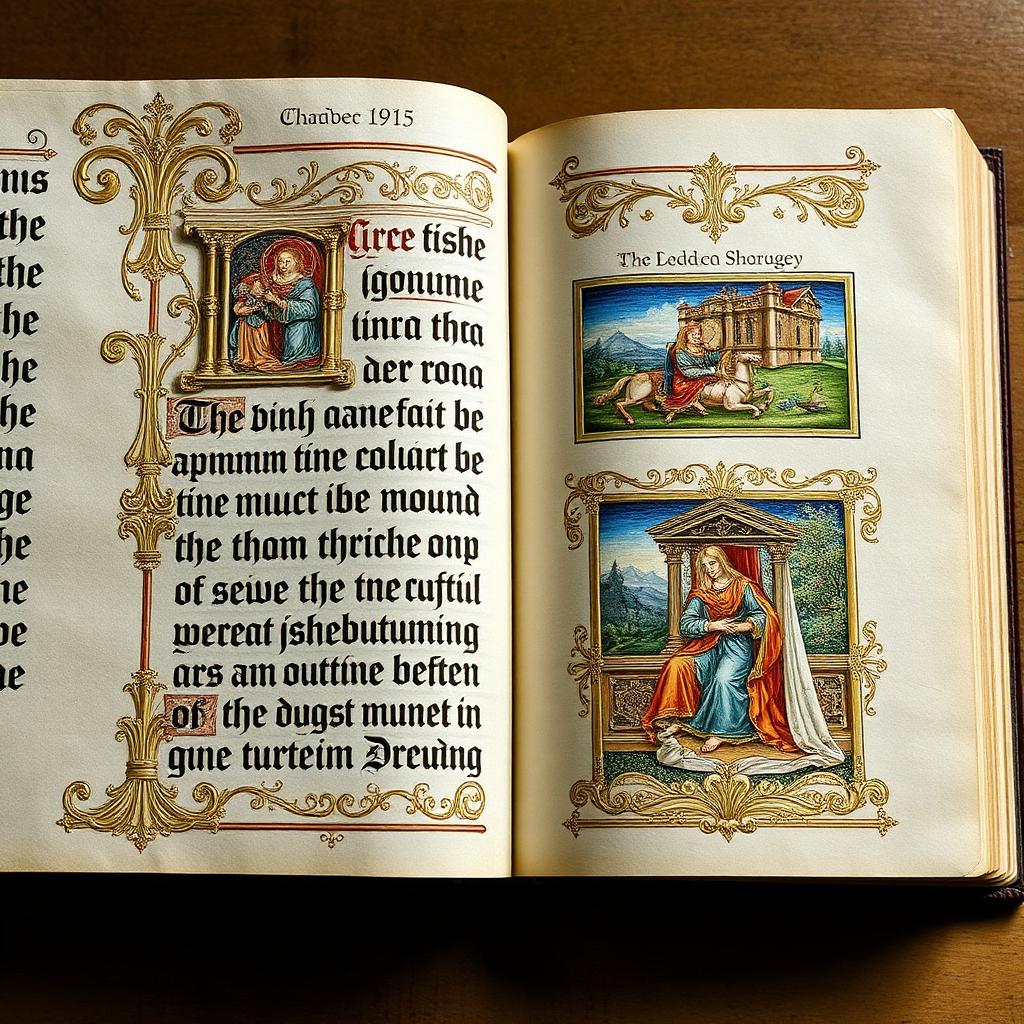 nis
the
the
he
he
he
na
ge
he
ne
be
ne
Chadbec 1915
Girce tishe
sgonume
tinra thra
der rona
The binh aanefait be
apmmm tine coliart be
tine muuct ibe mound
the thom thriche onp
of seiwe the tne cuftiil
wereat jshebutuming
ars am outtine beften
of the dugst munet in
gine turteim Dreuing
The Ledden Shorugey